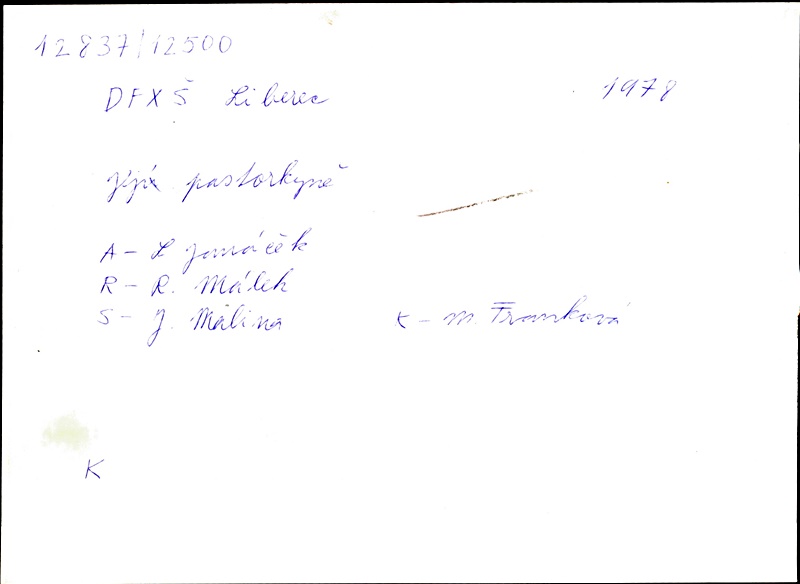 12837/12500
DFXŠ Liberec 1978
Její pastorkyně
A – L Janáček
R – R. Málek
S – J. Malina K – M. Franková
K